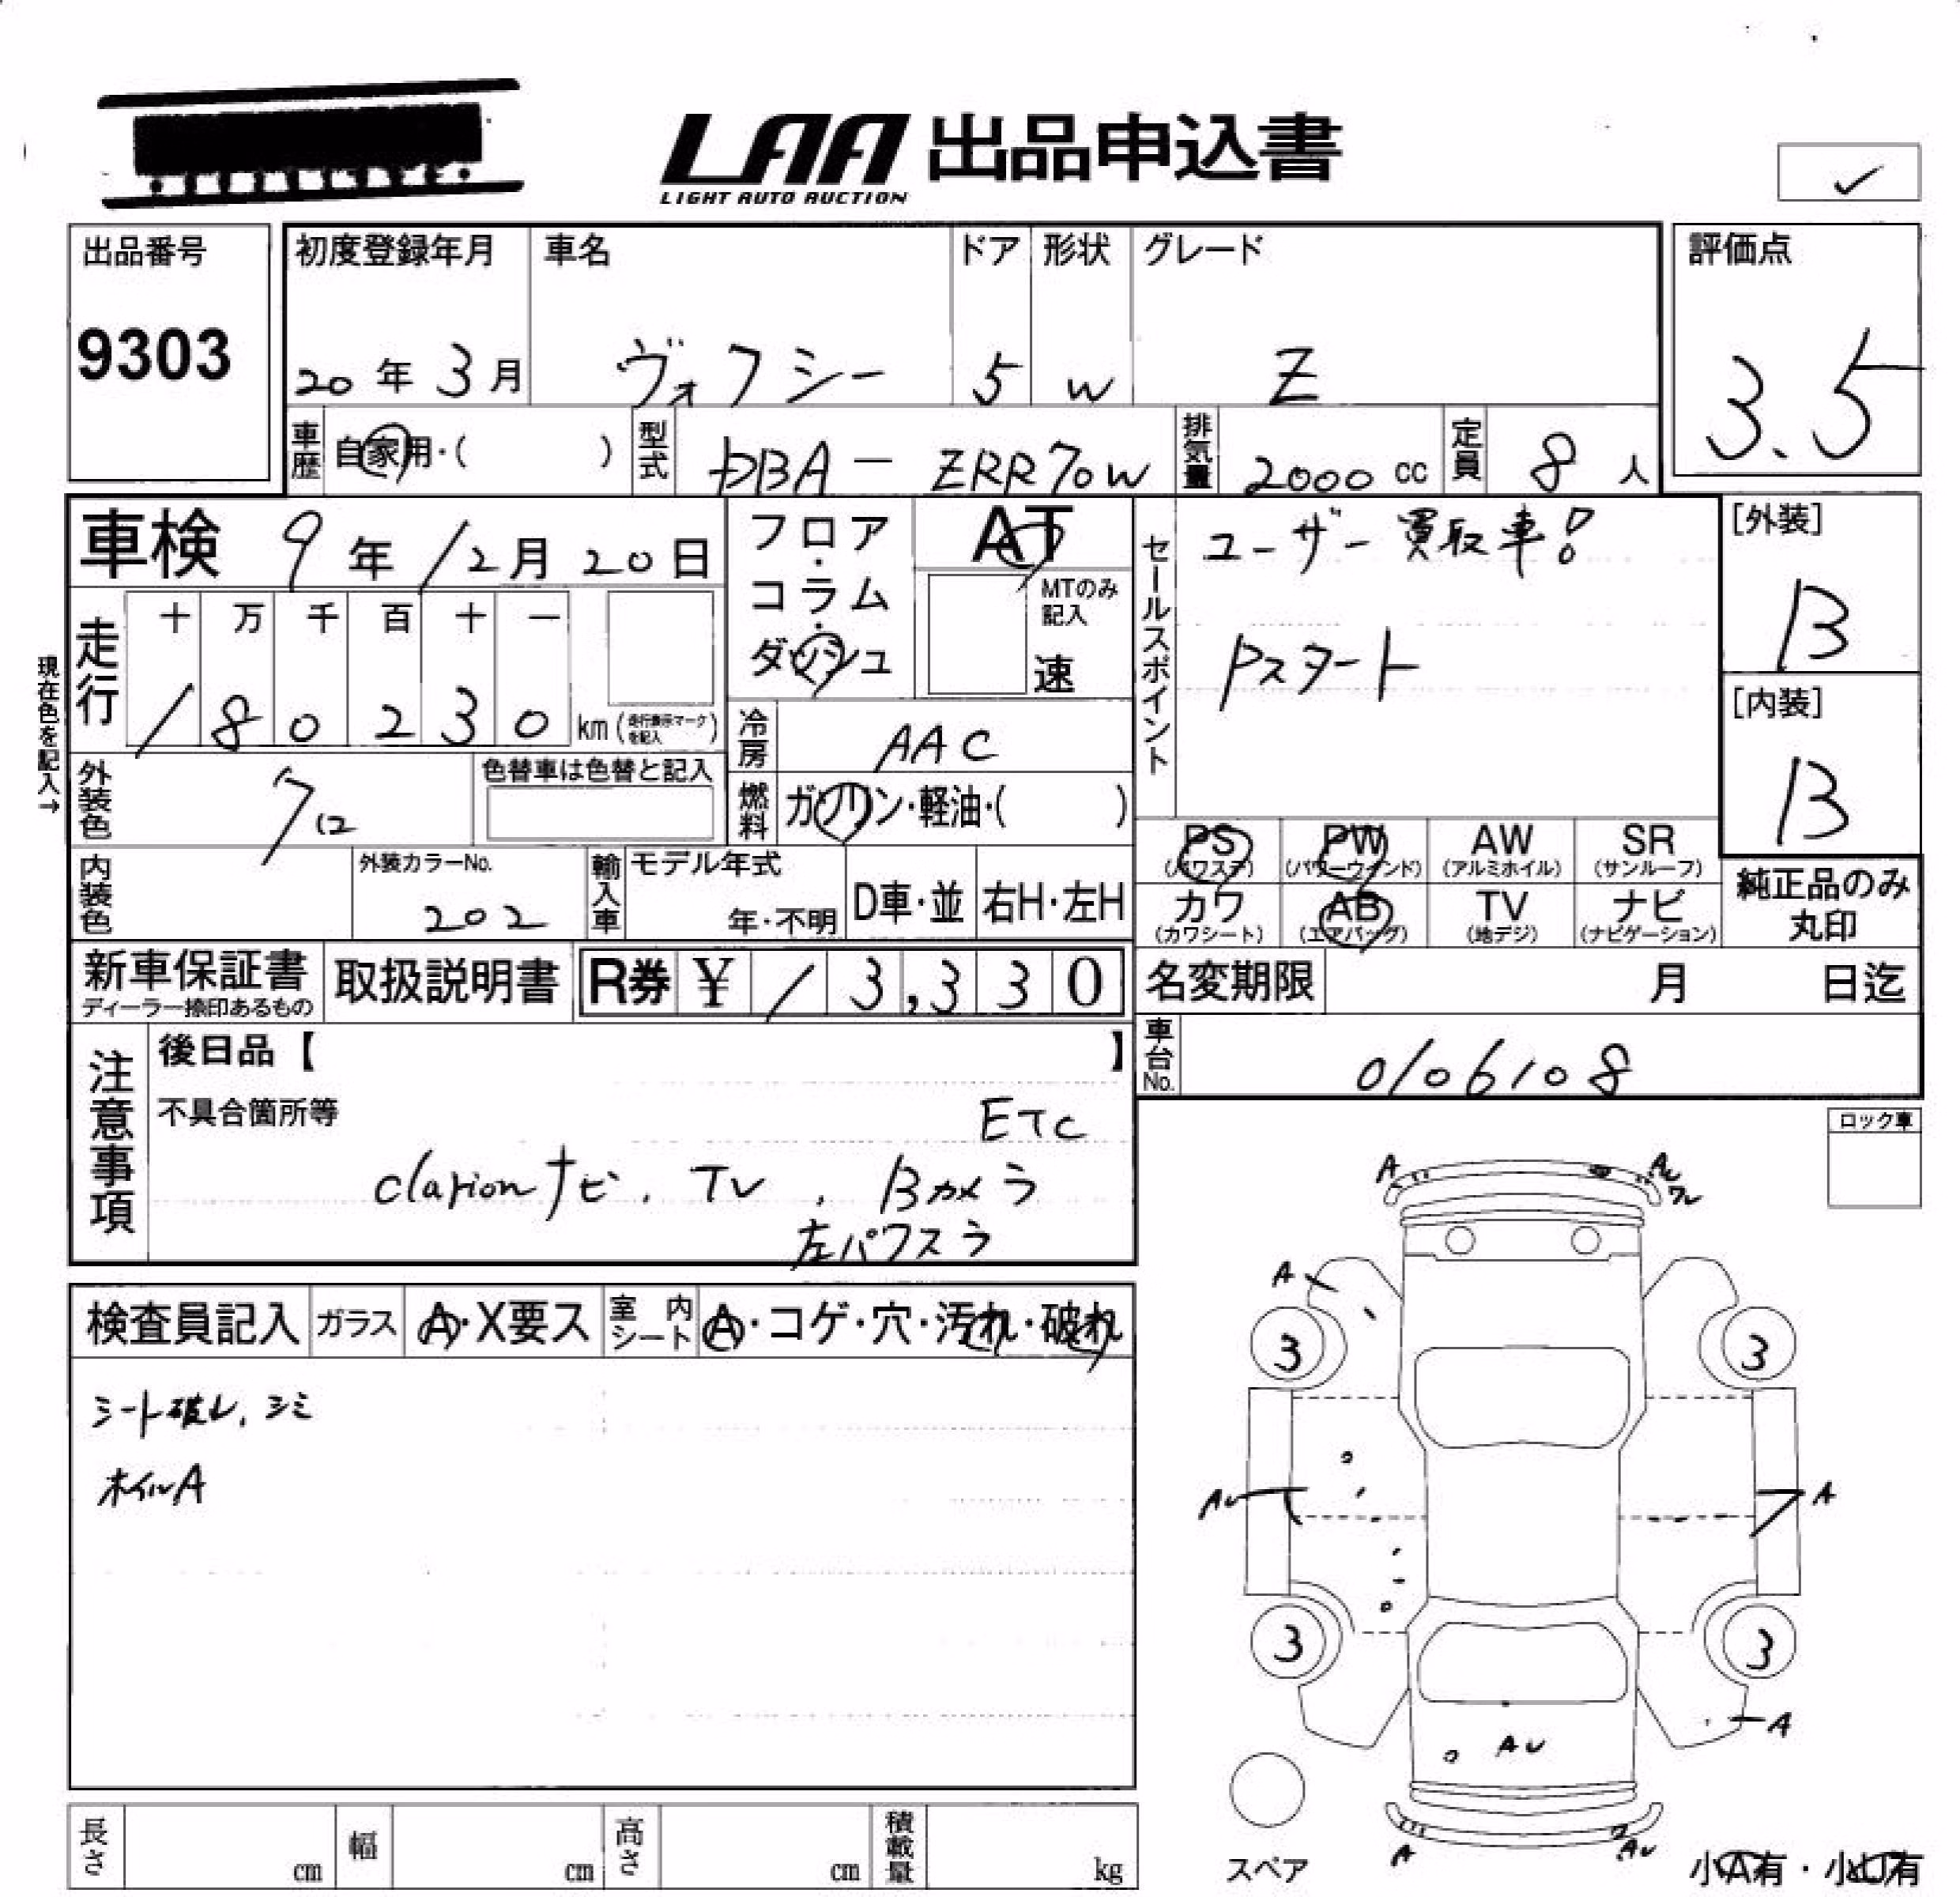 LAA 出品申込書
LIGHT AUTO AUCTION
出品番号
9303
初度登録年月
20年3月
車名
ヴォクシー
ドア
5
形状
W
グレード
Z
評価点
3.5
車歴
自家用・( )
型式
DBA-ZRR70W
排気量
2000cc
定員
8人
車検 9年12月20日
フロア・コラム・ダッシュ
AT
MTのみ記入
速
セールスポイント
ユーザー買取車!
Pスタート
[外装]
B
[内装]
B
現在色を記入→
走行
十 万 千 百 十 一
180230 km(走行表示マークを記入)
冷房
AAC
外装色
クロ
色替車は色替と記入
燃料
ガソリン・軽油・( )
PS
(パワステ)
PW
(パワーウインド)
AW
(アルミホイル)
SR
(サンルーフ)
カワ
(カワシート)
AB
(エアバッグ)
TV
(地デジ)
ナビ
(ナビゲーション)
純正品のみ
丸印
内装色
外装カラーNo.
202
輸入車
モデル年式
年・不明
D車・並
右H・左H
新車保証書
ディーラー捺印あるもの
取扱説明書
R券 ¥13,330
名変期限 月 日迄
車台No.
0106108
注意事項
後日品【 】
不具合箇所等
ETC
clarionナビ. TV. Bカメラ
左パワスラ
ロック車
検査員記入
ガラス
A・X要ス
室内シート
A・コゲ・穴・汚れ・破れ
シート破レ、シミ
ホイルA
A
AU
ワレ
A
3
3
AU
A
3
3
A
AU
A
AU
スペア
小A有・小U有
長さ cm
幅 cm
高さ cm
積載量 kg